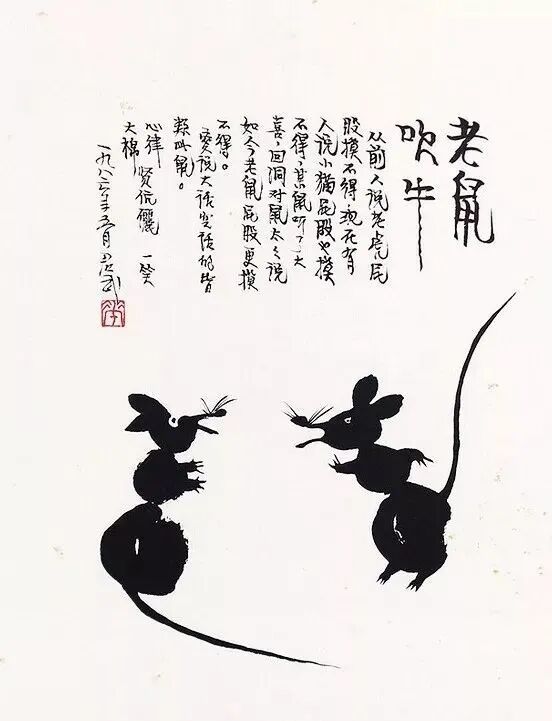 老鼠
吹牛
从前人说老虎屁
股摸不得现在有
人说小猫屁股也摸
不得，某鼠听了大
喜，回洞对鼠太太说
如今老鼠屁股更摸
不得。
爱说大话空话的皆
类此鼠。
心律 贤伉俪 一笑
大棉
一九八三年五月